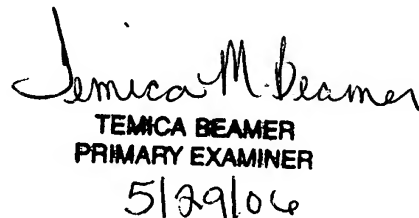 Temica M. Beamer
TEMICA BEAMER
PRIMARY EXAMINER
5/29/06